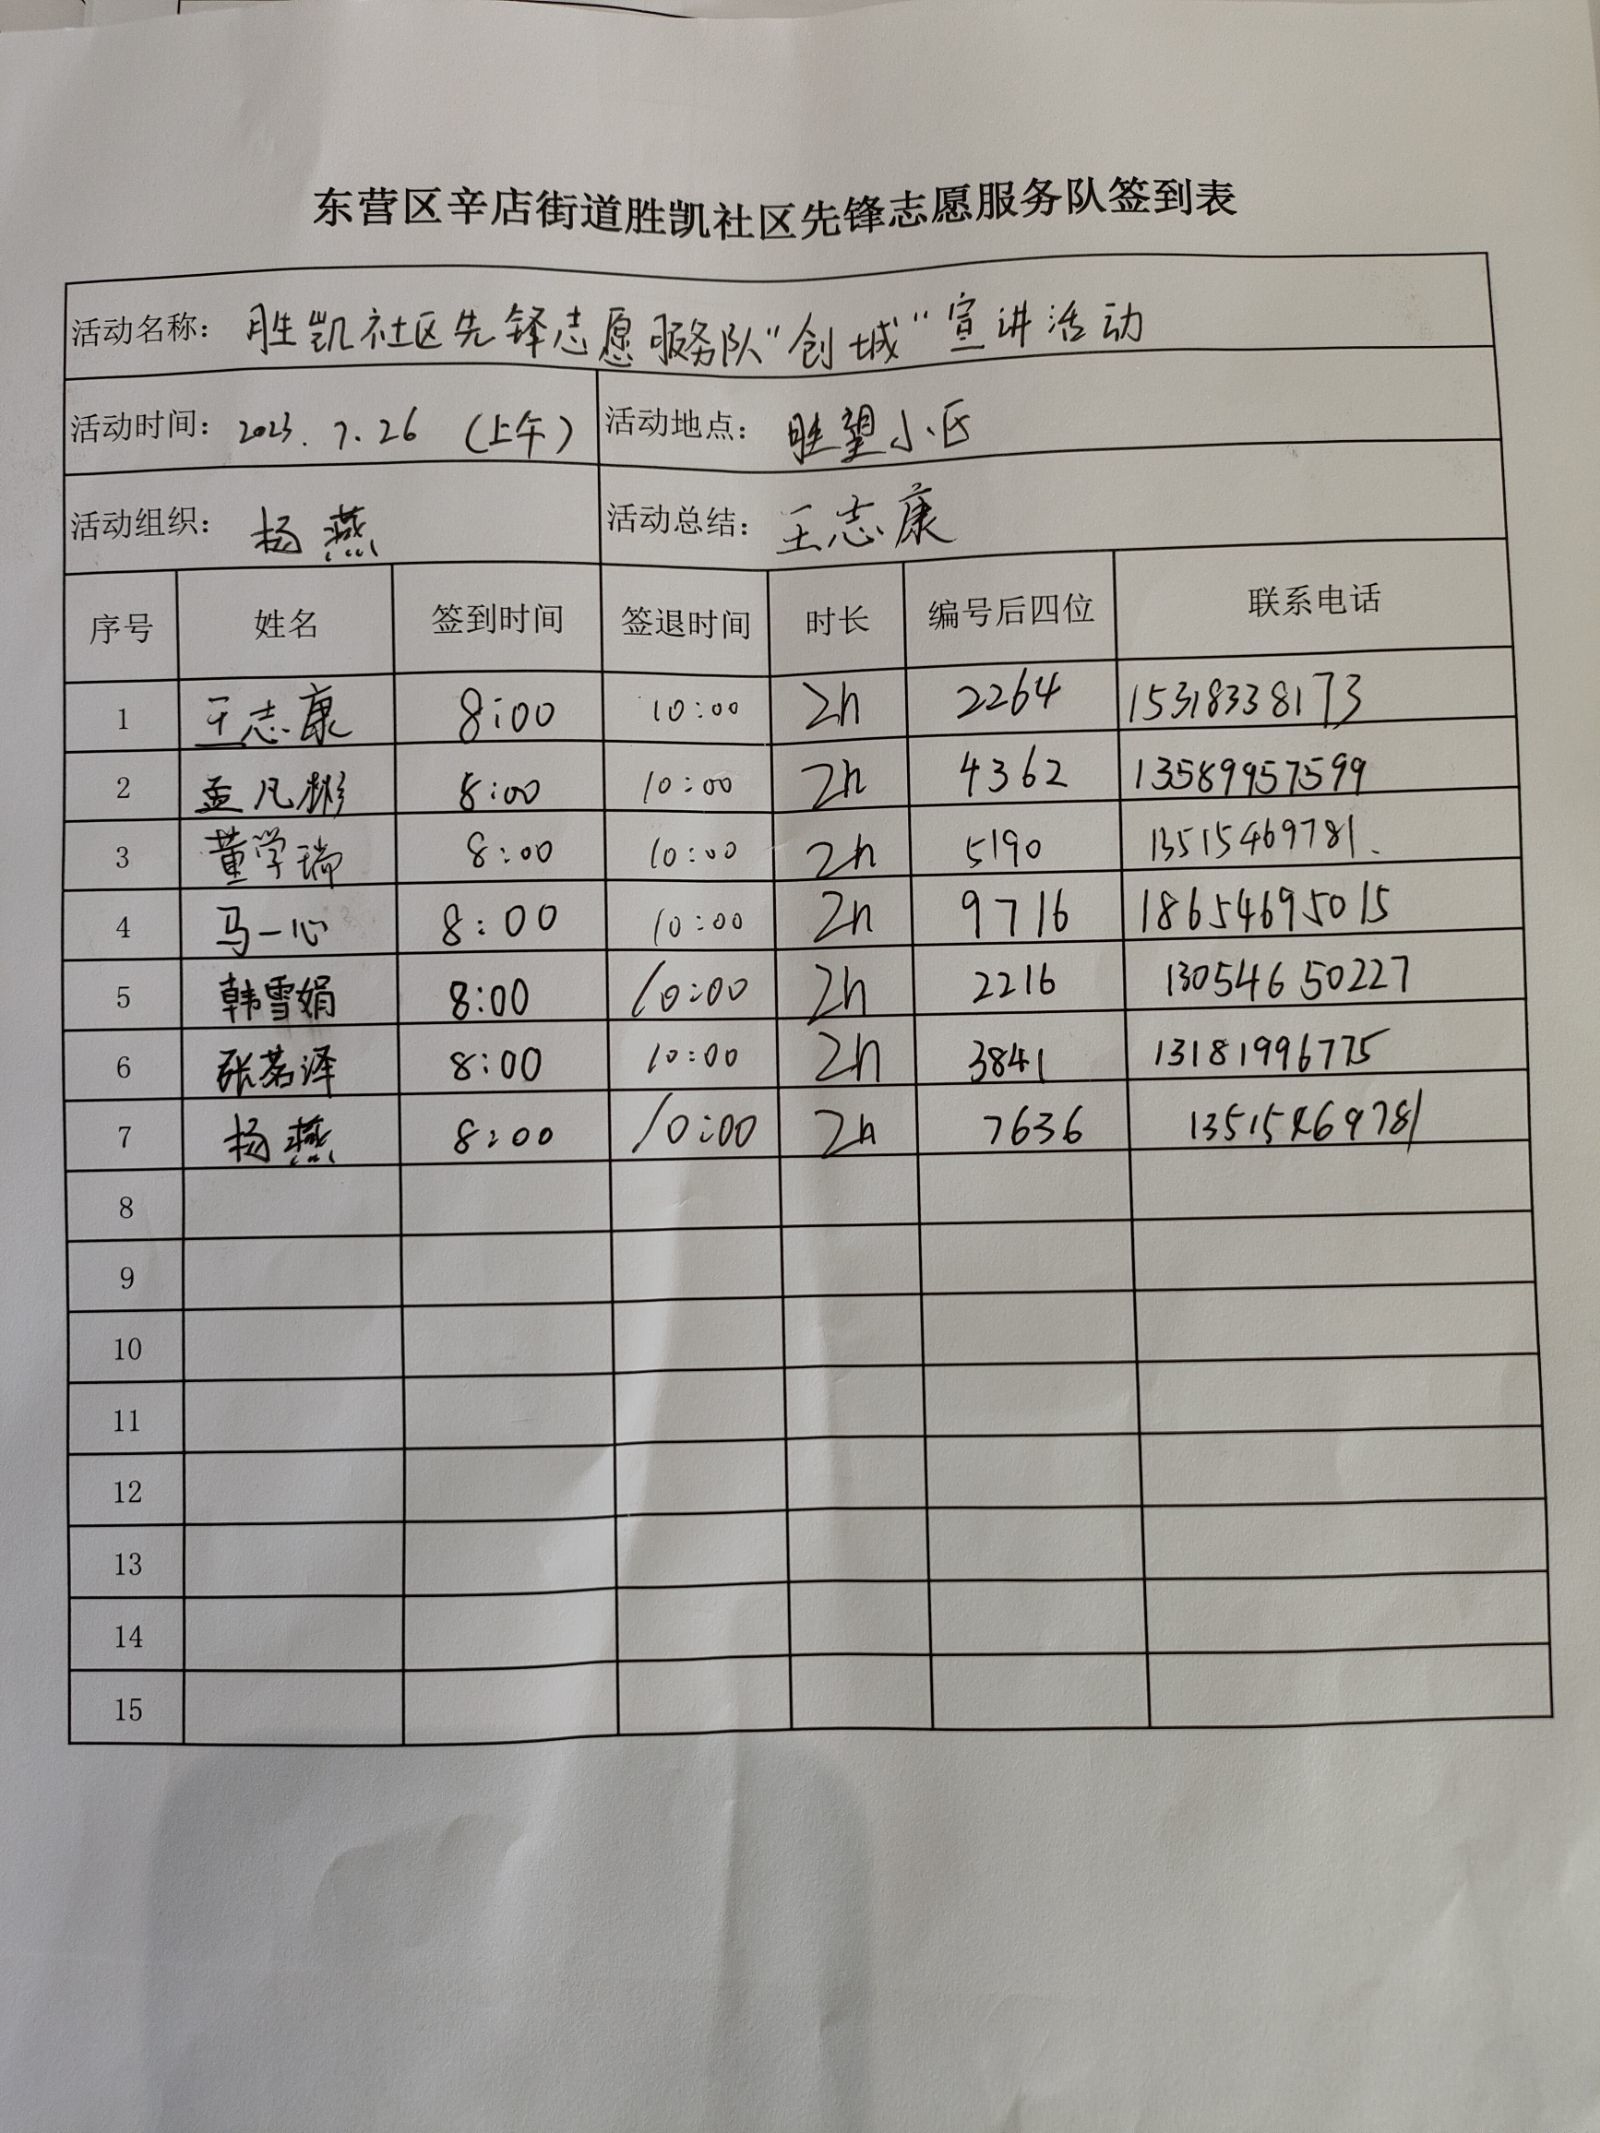 东营区辛店街道胜凯社区先锋志愿服务队签到表
活动名称: 胜凯社区先锋志愿服务队"创城"宣讲活动
活动时间: 2023.7.26 (上午) 活动地点: 胜望小区
活动组织: 杨燕 活动总结: 王志康
序号 姓名 签到时间 签退时间 时长 编号后四位 联系电话
1 王志康 8:00 10:00 2h 2264 15318338173
2 孟凡彬 8:00 10:00 2h 4362 13589957599
3 董学瑞 8:00 10:00 2h 5190 13515469781.
4 马一心 8:00 10:00 2h 9716 18654695015
5 韩雪娟 8:00 10:00 2h 2216 13054650227
6 张茗泽 8:00 10:00 2h 3841 13181996775
7 杨燕 8:00 10:00 2h 7636 13515469781
8
9
10
11
12
13
14
15